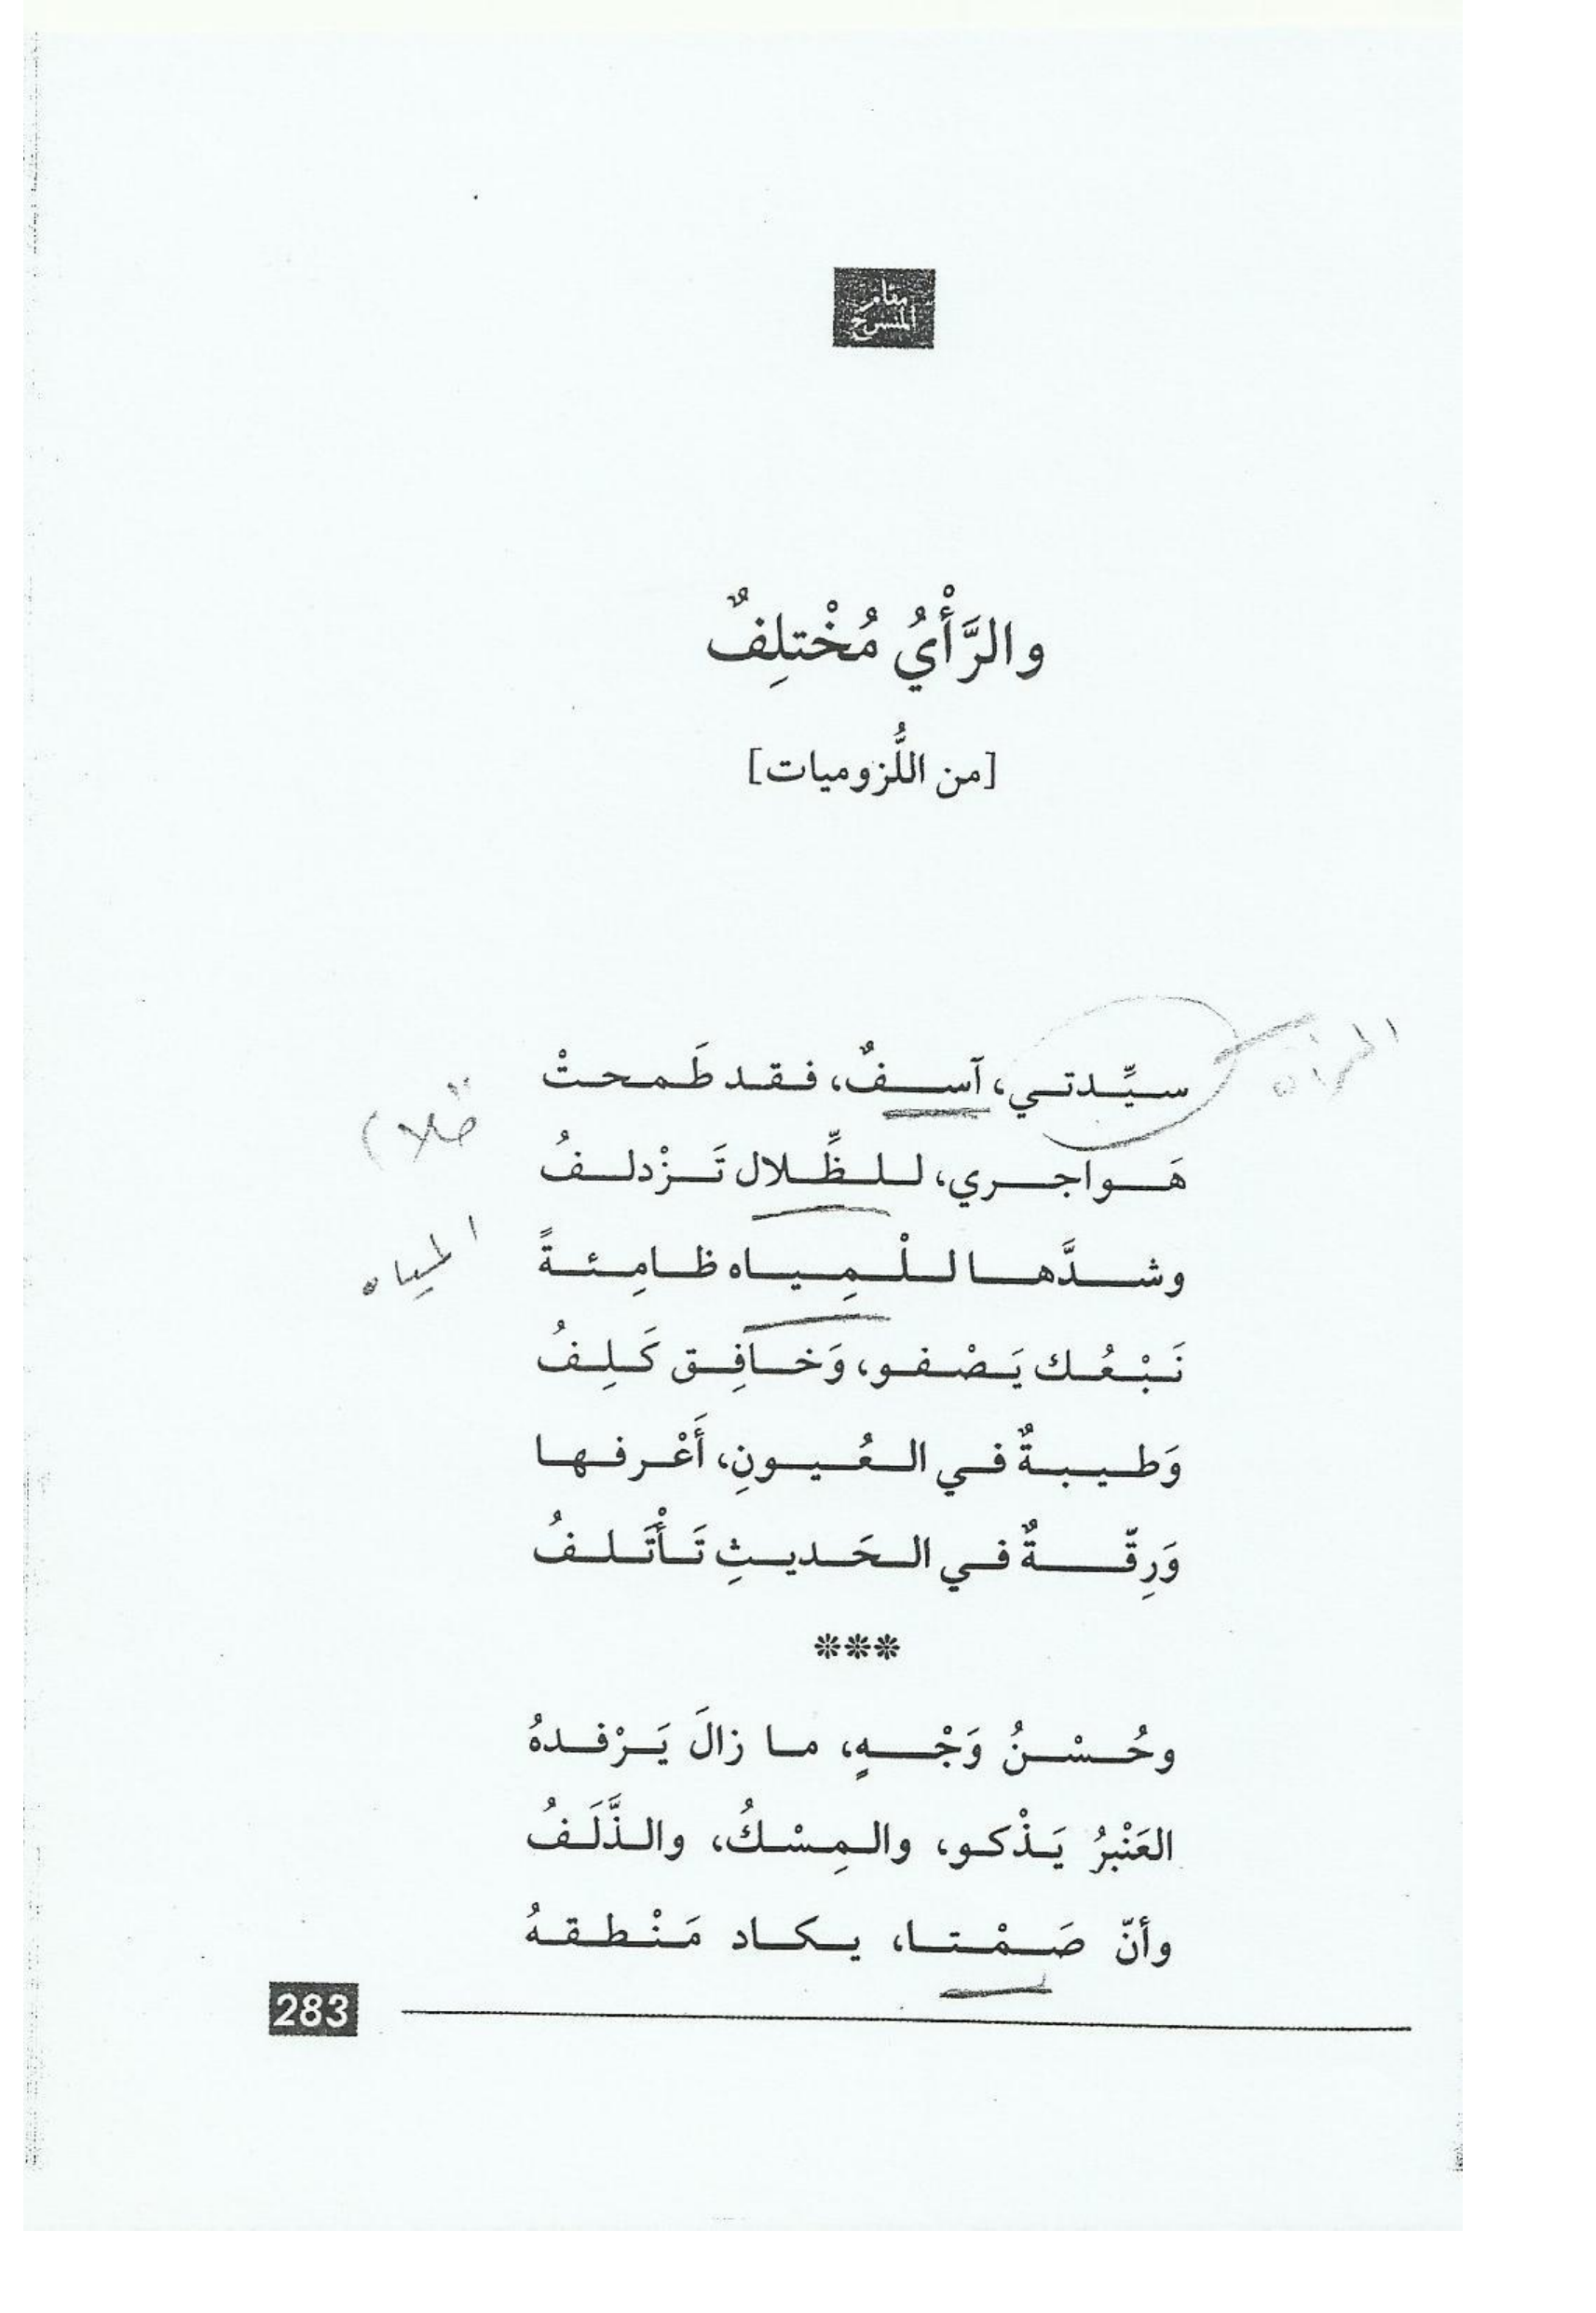 مقام
المنسرح
والرَّأْيُ مُخْتلِفٌ
[من اللُّزوميات]
المرأة
سيِّدتي، آسفٌ، فقد طَمحتْ
هَواجري، للظِّلال تَزْدلفُ
وشدَّها للْمِياه ظامِئةً
المياه
نَبْعُك يَصْفو، وَخافِق كَلِفُ
وَطيبةٌ في العُيونِ، أَعْرفها
وَرِقّةٌ في الحَديثِ تَأْتَلفُ
***
وحُسْنُ وَجْهٍ، ما زالَ يَرْفدهُ
العَنْبرُ يَذْكو، والمِسْكُ، والذَّلَفُ
وأنّ صَمْتا، يكاد مَنْطقهُ
283